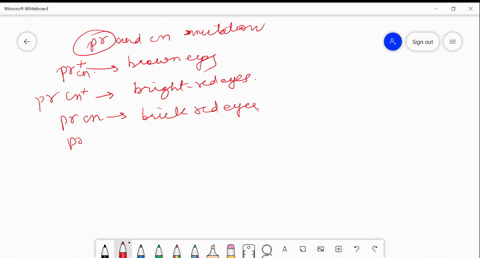 Microsoft Whiteboard
Sign out
pr and cn mutation
pr⁺ cn → brown eyes
pr cn⁺ → bright-red eyes.
pr cn → brick red eyes
pr